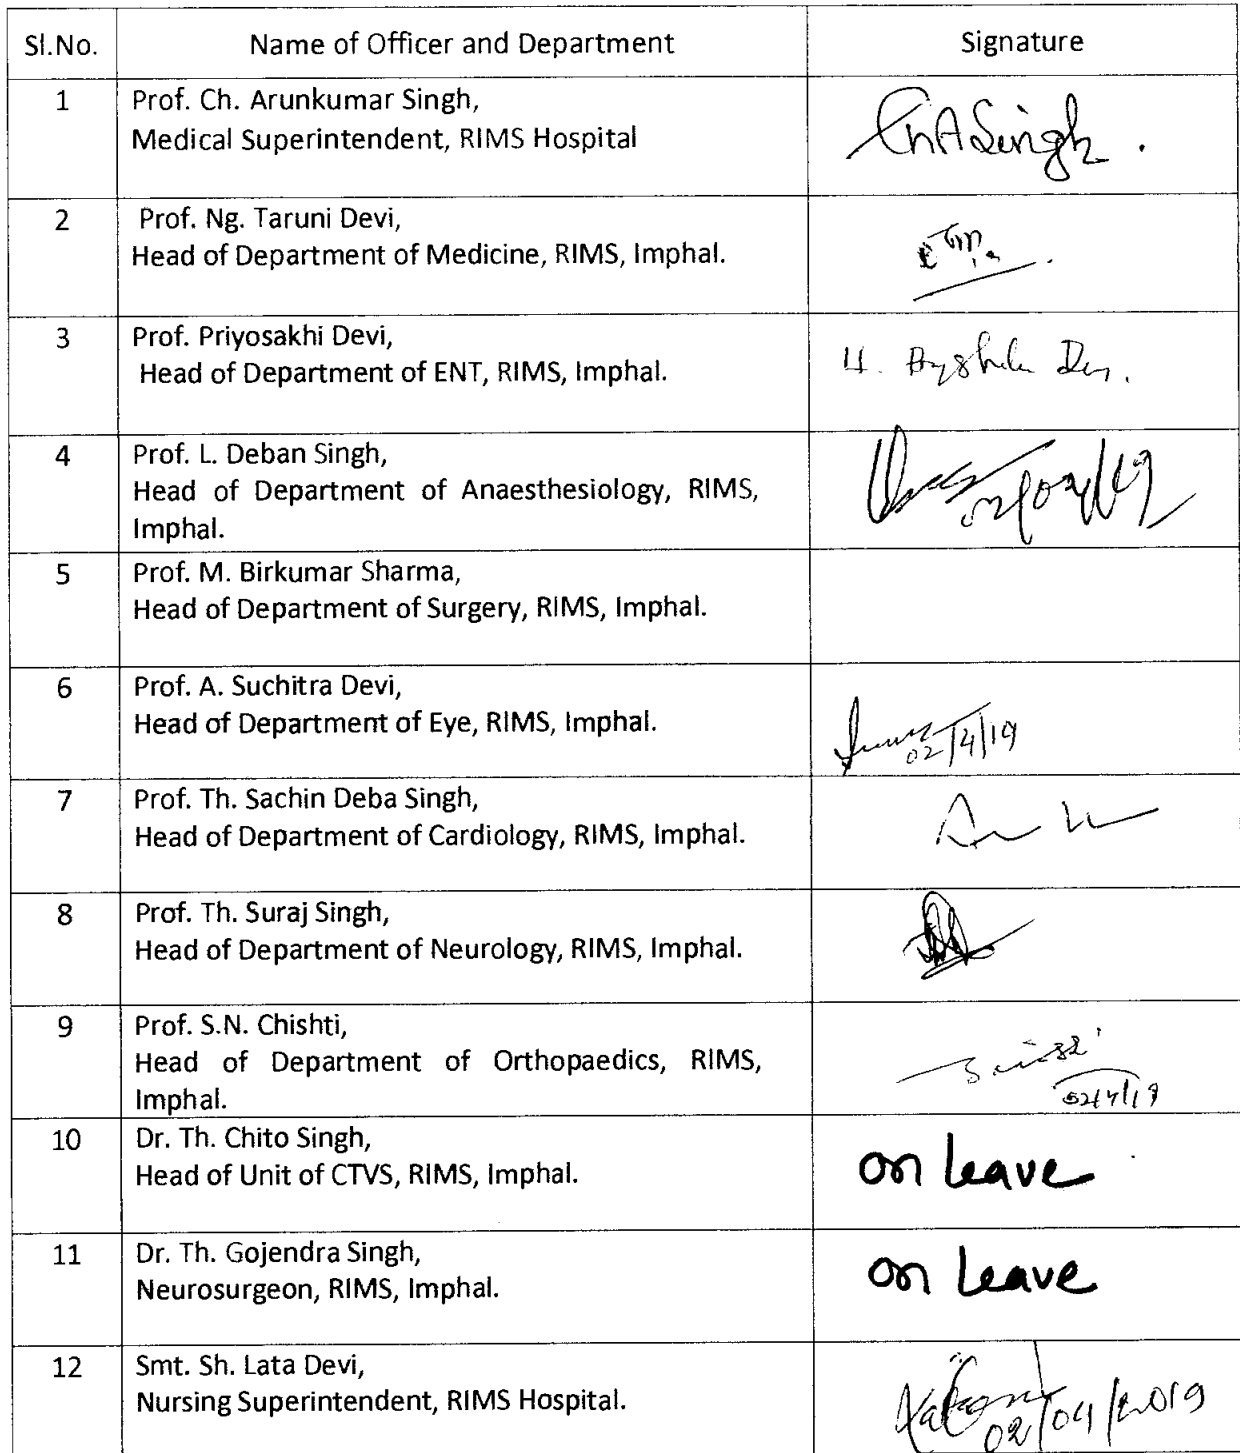 Sl.No.
Name of Officer and Department
Signature
1
Prof. Ch. Arunkumar Singh,
Medical Superintendent, RIMS Hospital
ChASingh.
2
Prof. Ng. Taruni Devi,
Head of Department of Medicine, RIMS, Imphal.
3
Prof. Priyosakhi Devi,
Head of Department of ENT, RIMS, Imphal.
4
Prof. L. Deban Singh,
Head of Department of Anaesthesiology, RIMS,
Imphal.
02/04/19
5
Prof. M. Birkumar Sharma,
Head of Department of Surgery, RIMS, Imphal.
6
Prof. A. Suchitra Devi,
Head of Department of Eye, RIMS, Imphal.
02/4/19
7
Prof. Th. Sachin Deba Singh,
Head of Department of Cardiology, RIMS, Imphal.
8
Prof. Th. Suraj Singh,
Head of Department of Neurology, RIMS, Imphal.
9
Prof. S.N. Chishti,
Head of Department of Orthopaedics, RIMS,
Imphal.
02/4/19
10
Dr. Th. Chito Singh,
Head of Unit of CTVS, RIMS, Imphal.
on leave
11
Dr. Th. Gojendra Singh,
Neurosurgeon, RIMS, Imphal.
on leave
12
Smt. Sh. Lata Devi,
Nursing Superintendent, RIMS Hospital.
02/04/2019